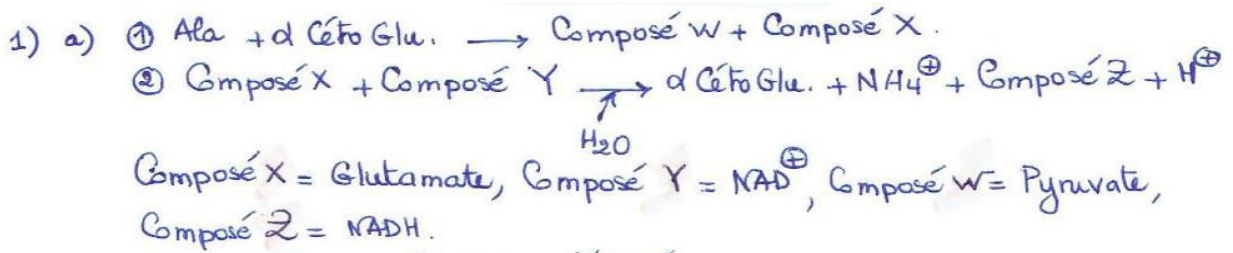 1) a) ① Ala + α Céto Glu. → Composé W + Composé X.
② Composé X + Composé Y → α Céto Glu. + NH4⊕ + Composé Z + H⊕
H2O
Composé X = Glutamate, Composé Y = NAD⊕, Composé W = Pyruvate,
Composé Z = NADH.